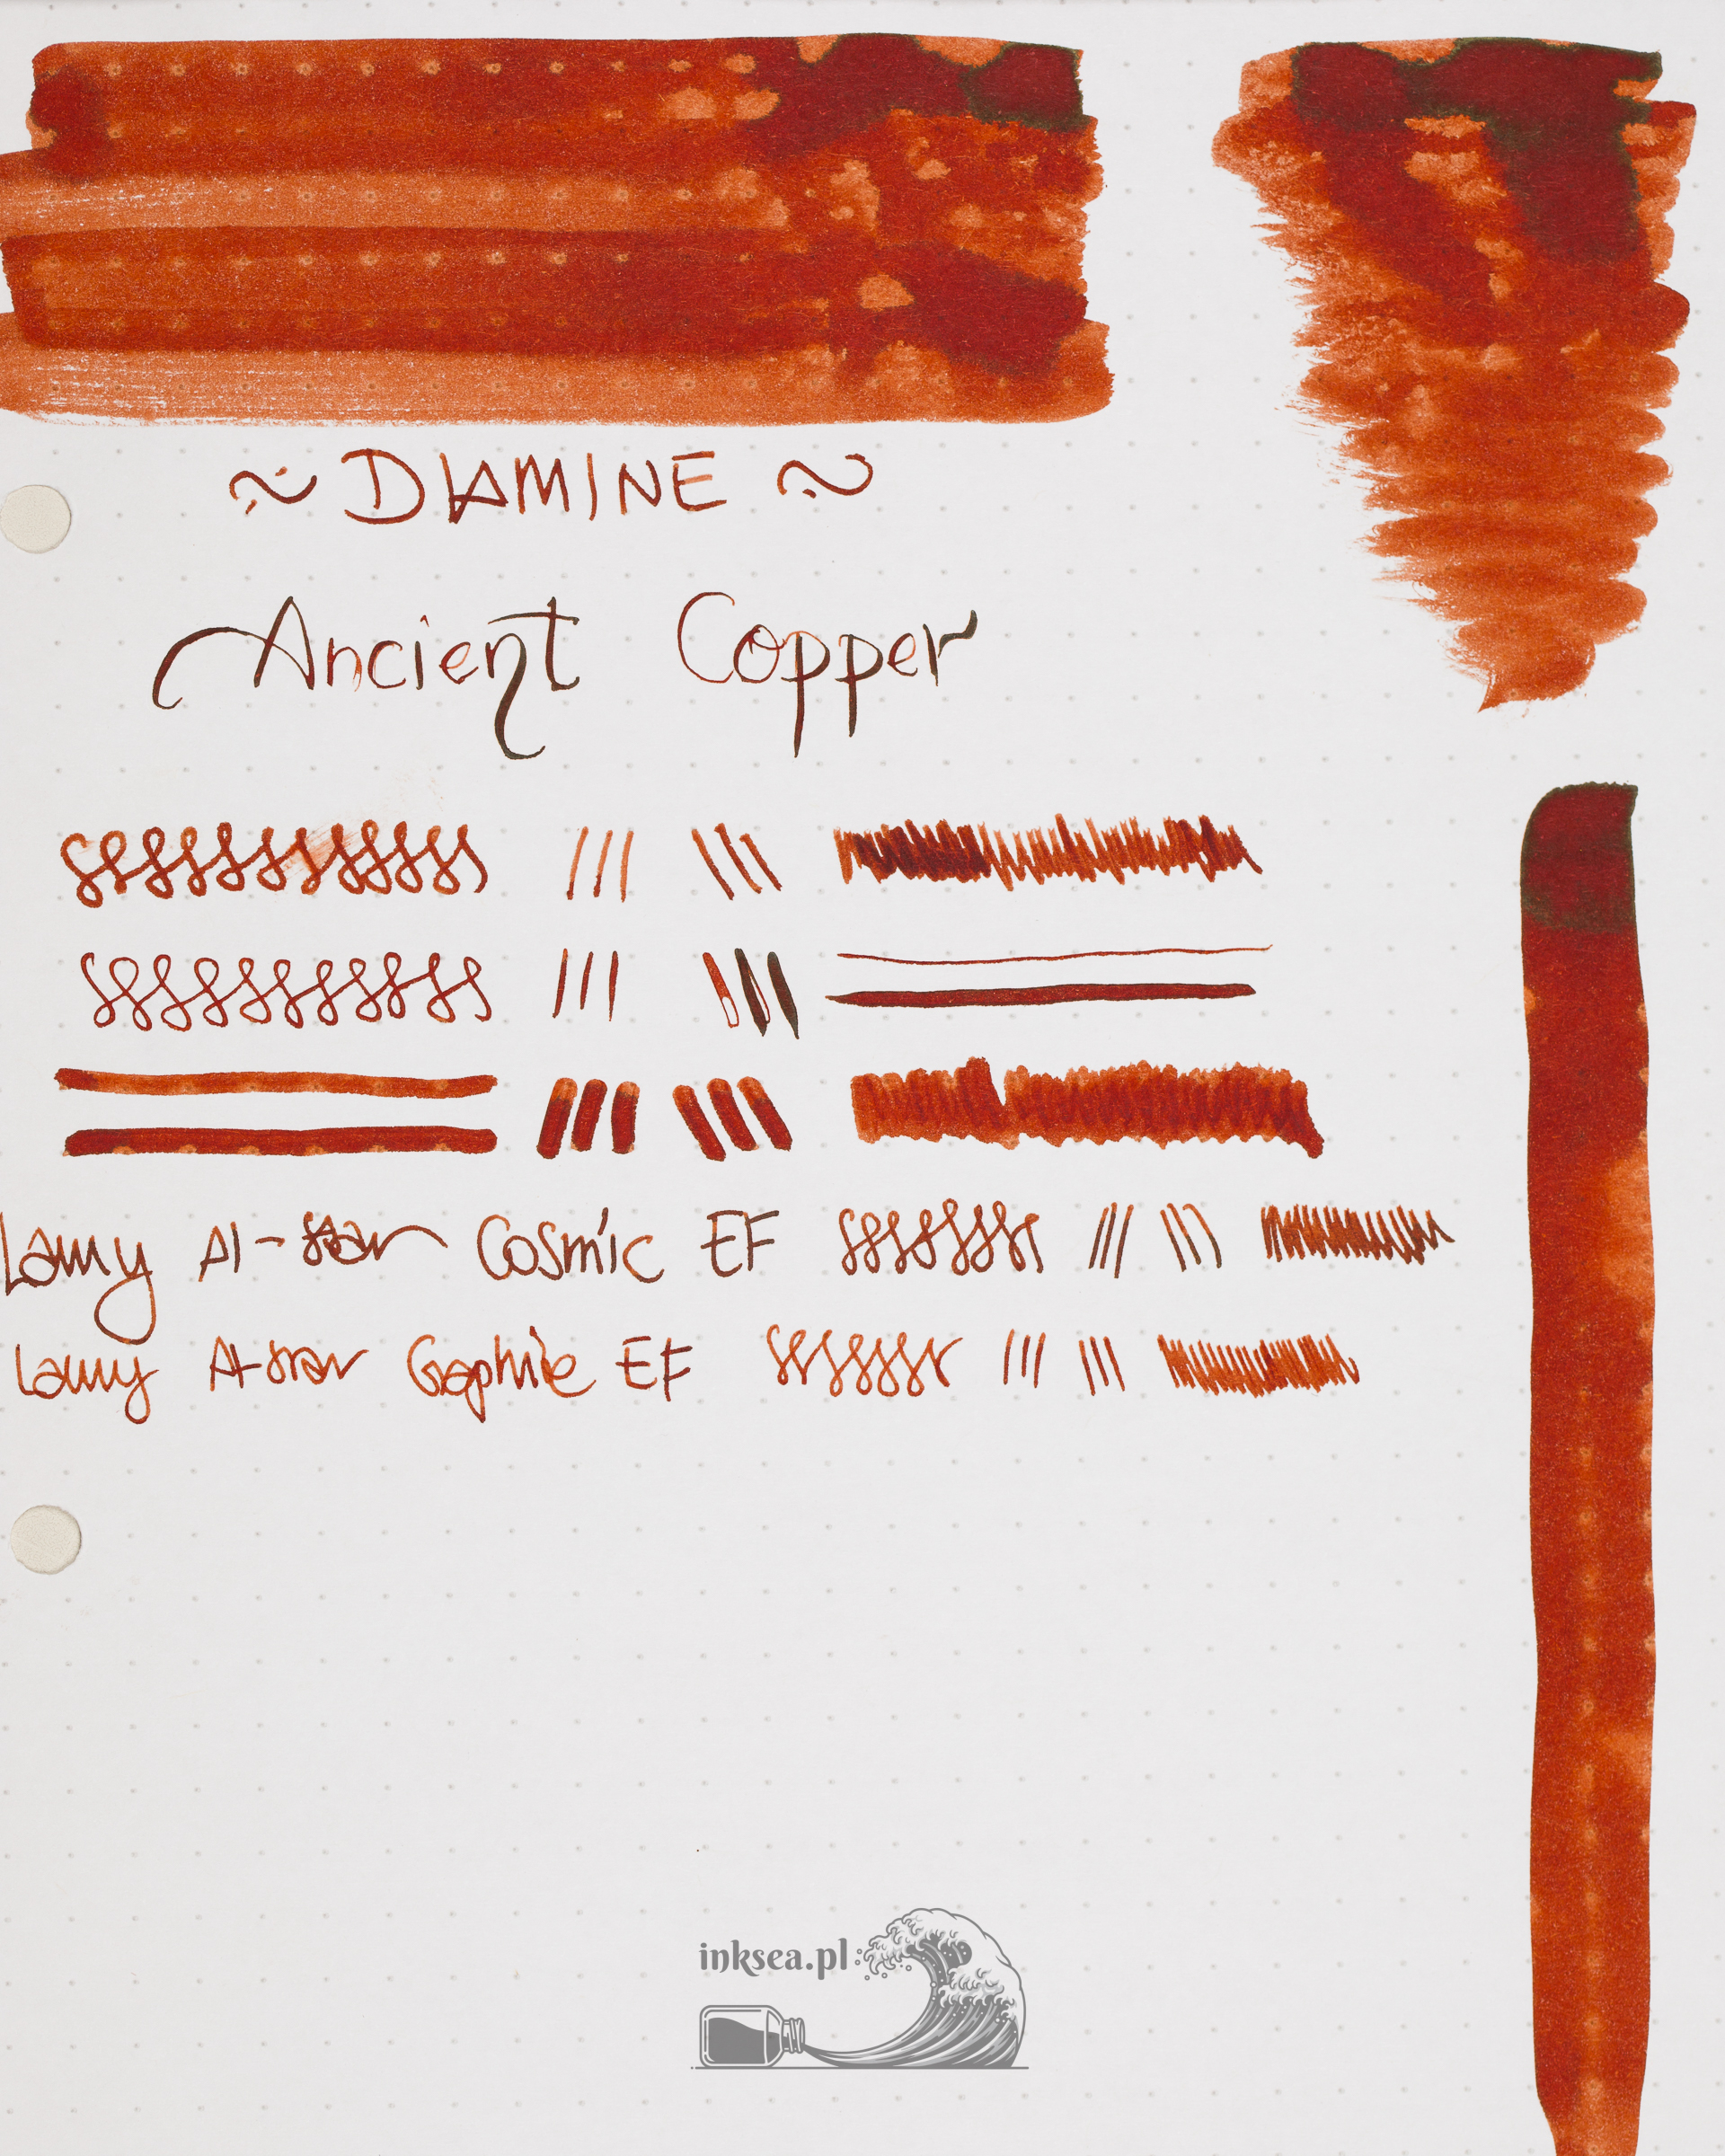 ~ DIAMINE ~
Ancient Copper
Lamy Al-star Cosmic EF
Lamy Al-star Graphite EF
inksea.pl